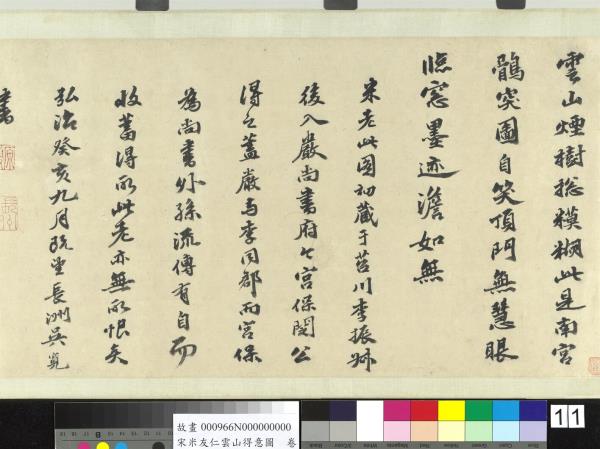 雲山煙樹総糢糊此是南宮
鶻突圖自笑頂門無慧眼
臨窓墨迹澹如無
米老此圖初藏于苕川李振
後入嚴尚書府今宮保閔公
得之蓋嚴与李同郡而宮保
為尚書外孫流傳有自而
收蓄得所此老亦無所恨矣
弘治癸亥九月既望長洲吳寬
書
故畫 000966N000000000
宋米友仁雲山得意圖 卷
Blue Cyan Green Yellow Red Magenta White 3/Color Black
11